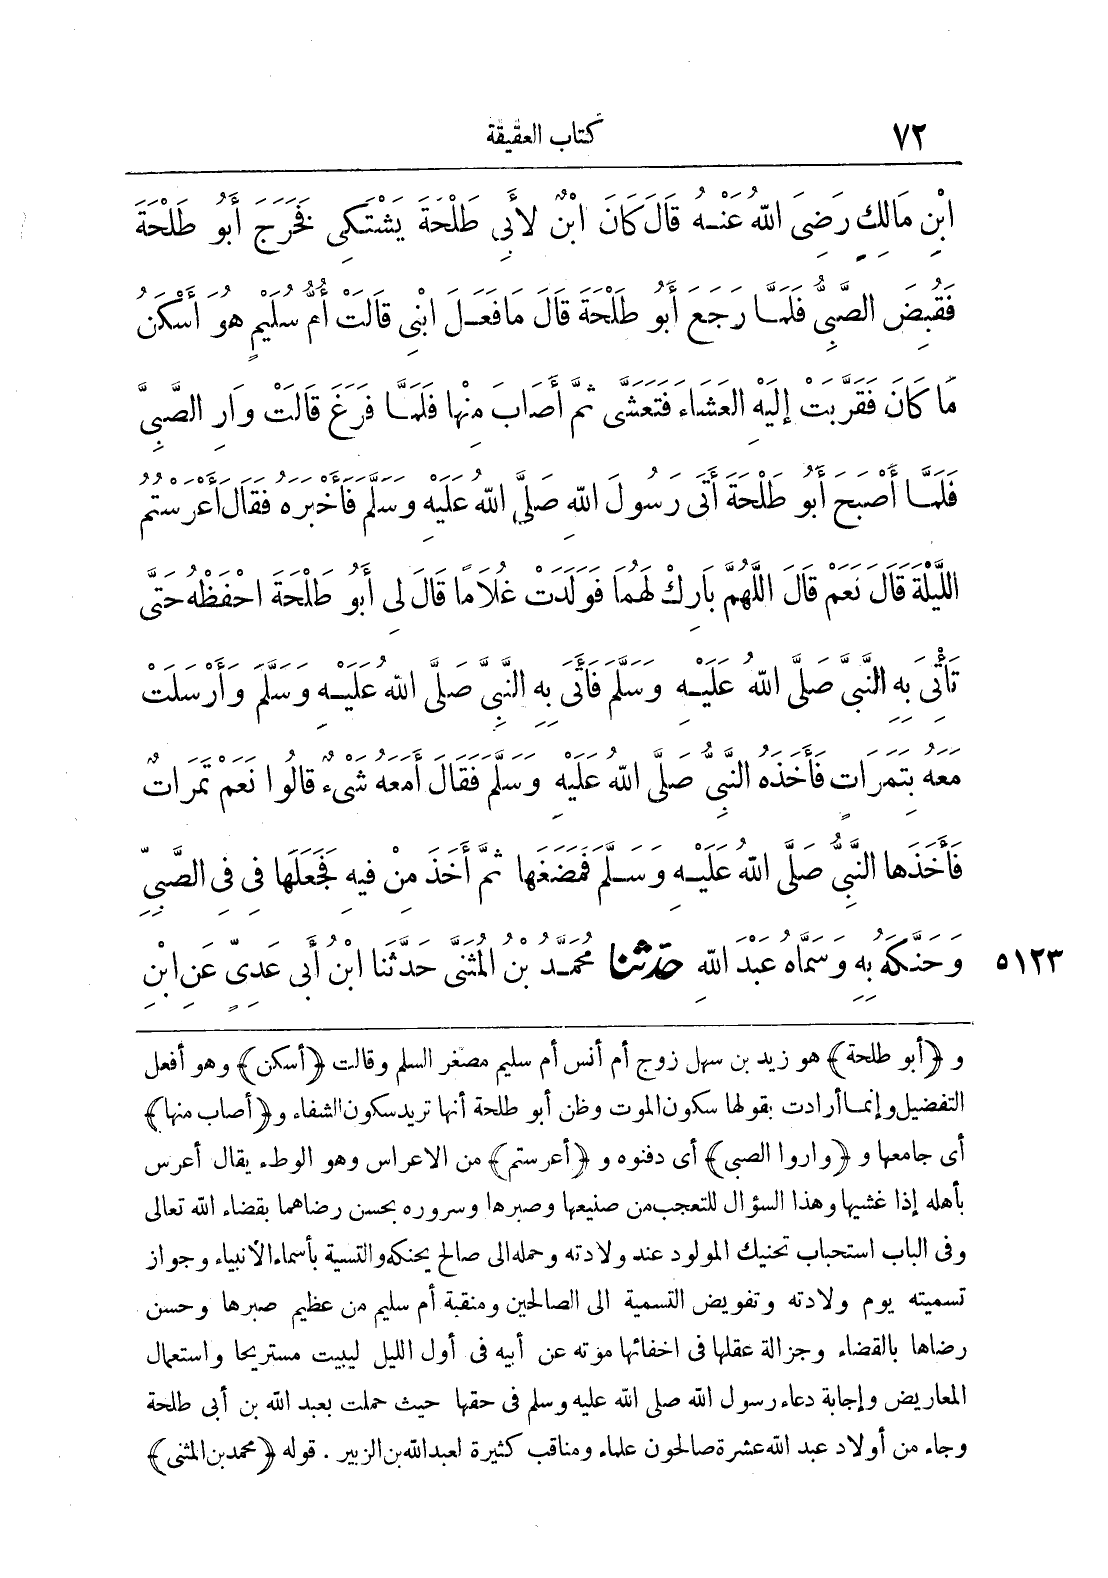 ٧٢ كتاب العقيقة
ابْنِ مَالِكٍ رَضِىَ اللهُ عَنْهُ قَالَ كَانَ ابْنٌ لأَبِى طَلْحَةَ يَشْتَكِى فَخَرَجَ أَبُو طَلْحَةَ
فَقُبِضَ الصَّبِىُّ فَلَمَّا رَجَعَ أَبُو طَلْحَةَ قَالَ مَا فَعَلَ ابْنِى قَالَتْ أُمُّ سُلَيْمٍ هُوَ أَسْكَنُ
مَا كَانَ فَقَرَّبَتْ إِلَيْهِ الْعَشَاءَ فَتَعَشَّى ثُمَّ أَصَابَ مِنْهَا فَلَمَّا فَرَغَ قَالَتْ وَارِ الصَّبِىَّ
فَلَمَّا أَصْبَحَ أَبُو طَلْحَةَ أَتَى رَسُولَ اللهِ صَلَّى اللهُ عَلَيْهِ وَسَلَّمَ فَأَخْبَرَهُ فَقَالَ أَعْرَسْتُمُ
اللَّيْلَةَ قَالَ نَعَمْ قَالَ اللَّهُمَّ بَارِكْ لَهُمَا فَوَلَدَتْ غُلَامًا قَالَ لِى أَبُو طَلْحَةَ احْفَظْهُ حَتَّى
تَأْتِىَ بِهِ النَّبِىَّ صَلَّى اللهُ عَلَيْهِ وَسَلَّمَ فَأَتَى بِهِ النَّبِىَّ صَلَّى اللهُ عَلَيْهِ وَسَلَّمَ وَأَرْسَلَتْ
مَعَهُ بِتَمَرَاتٍ فَأَخَذَهُ النَّبِىُّ صَلَّى اللهُ عَلَيْهِ وَسَلَّمَ فَقَالَ أَمَعَهُ شَىْءٌ قَالُوا نَعَمْ تَمَرَاتٌ
فَأَخَذَهَا النَّبِىُّ صَلَّى اللهُ عَلَيْهِ وَسَلَّمَ فَمَضَغَهَا ثُمَّ أَخَذَ مِنْ فِيهِ فَجَعَلَهَا فِى فِى الصَّبِىِّ
وَحَنَّكَهُ بِهِ وَسَمَّاهُ عَبْدَ اللهِ حَدَّثَنَا مُحَمَّدُ بْنُ الْمُثَنَّى حَدَّثَنَا ابْنُ أَبِى عَدِىٍّ عَنِ ابْنِ ٥١٢٣
و ﴿أبو طلحة﴾ هو زيد بن سهل زوج أم أنس أم سليم مصغر السلم وقالت ﴿أسكن﴾ وهو أفعل
التفضيل وإنما أرادت بقولها سكون الموت وظن أبو طلحة أنها تريد سكون الشفاء و﴿أصاب منها﴾
أى جامعها و ﴿واروا الصبى﴾ أى دفنوه و ﴿أعرستم﴾ من الاعراس وهو الوطء يقال أعرس
بأهله إذا غشيها وهذا السؤال للتعجب من صنيعها وصبرها وسروره بحسن رضاهما بقضاء الله تعالى
وفى الباب استحباب تحنيك المولود عند ولادته وحمله الى صالح يحنكه والتسية بأسماء الأنبياء وجواز
تسميته يوم ولادته وتفويض التسمية الى الصالحين ومنقبة أم سليم من عظيم صبرها وحسن
رضاها بالقضاء وجزالة عقلها فى اخفائها موته عن أبيه فى أول الليل ليبيت مستريحا واستعمال
المعاريض وإجابة دعاء رسول الله صلى الله عليه وسلم فى حقها حيث حملت بعبد الله بن أبى طلحة
وجاء من أولاد عبد الله عشرة صالحون علماء ومناقب كثيرة لعبد الله بن الزبير . قوله ﴿محمد بن المثنى﴾